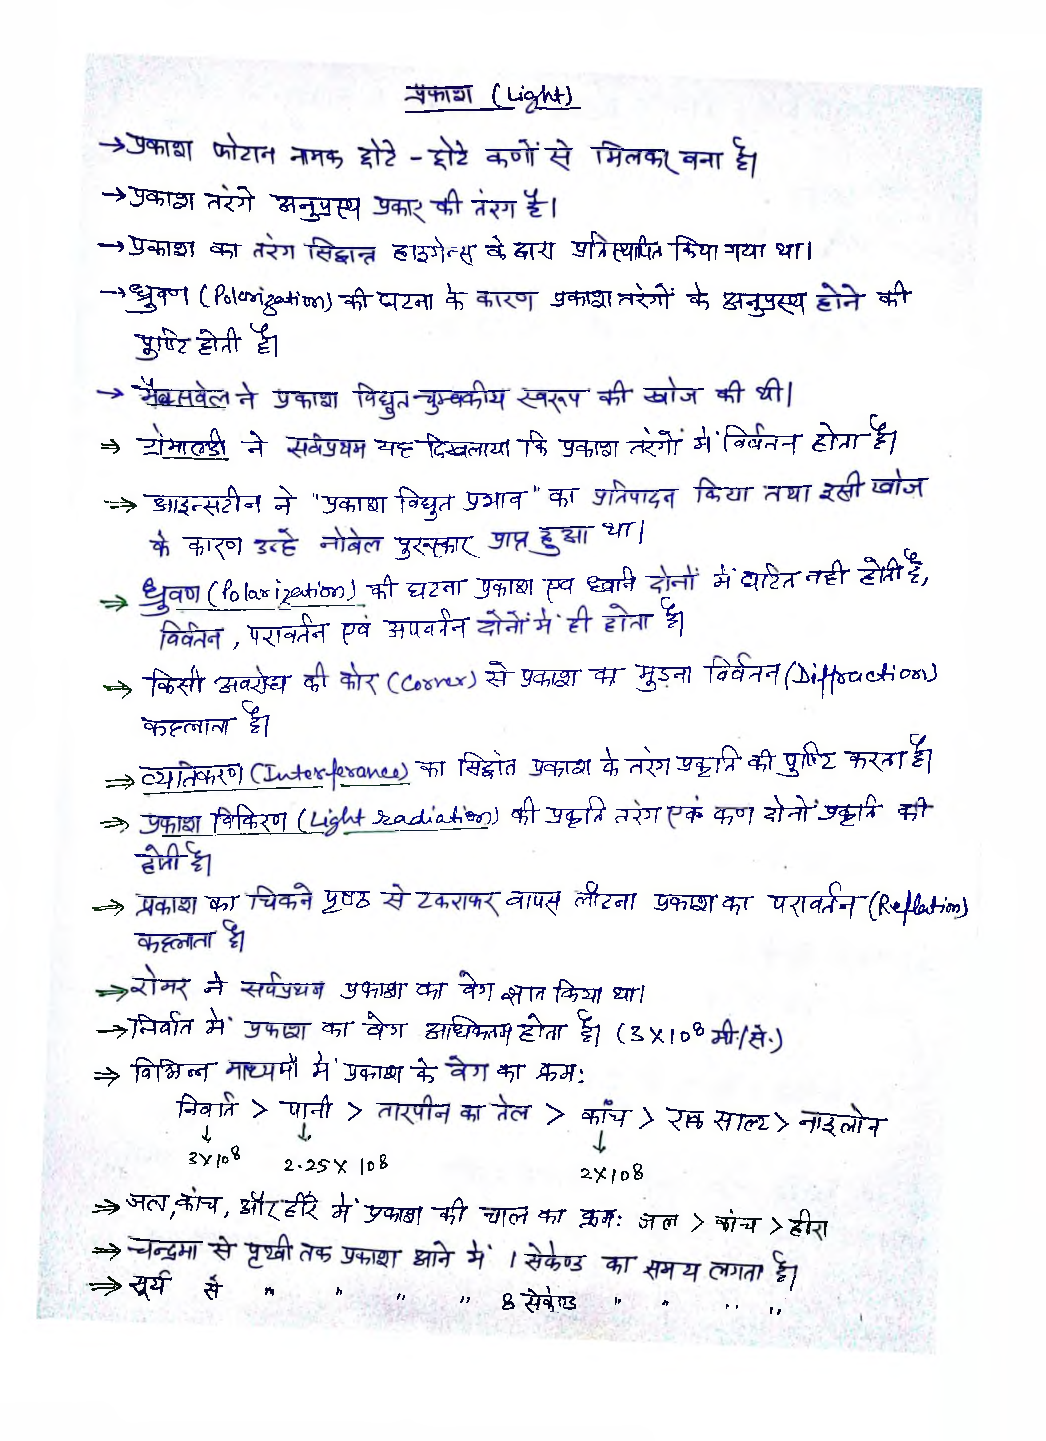 प्रकाश (Light)
→ प्रकाश फोटान नामक छोटे - छोटे कणों से मिलकर बना है।
→ प्रकाश तरंगे अनुप्रस्थ प्रकार की तंरग है।
→ प्रकाश का तरंग सिद्धान्त हाइगेन्स के द्वारा प्रतिस्थापित किया गया था।
→ ध्रुवण (Polarization) की घटना के कारण प्रकाश तरंगों के अनुप्रस्थ होने की
पुष्टि होती है।
→ मैक्सवेल ने प्रकाश विद्युत-चुम्बकीय स्वरूप की खोज की थी।
⇒ ग्रेमाल्डी ने सर्वप्रथम यह दिखलाया कि प्रकाश तरंगों में विर्वतन होता है।
⇒ आइन्सटीन ने "प्रकाश विद्युत प्रभाव" का प्रतिपादन किया तथा इसी खोज
के कारण उन्हे नोबेल पुरूस्कार प्राप्त हुआ था।
⇒ ध्रुवण (Polarization) की घटना प्रकाश एंव ध्वनि दोनों में घटित नही होती है,
विर्वतन, परावर्तन एवं अपवर्तन दोनों में ही होता है।
⇒ किसी अवरोध की कोर (Corner) से प्रकाश का मुड़ना विर्वतन (Diffraction)
कहलाता है।
⇒ व्यतिकरण (Interferance) का सिद्वांत प्रकाश के तरंग प्रकृति की पुष्टि करता है।
⇒ प्रकाश विकिरण (Light radiation) की प्रकृति तरंग एंव कण दोनों प्रकृति की
होती है।
⇒ प्रकाश का चिकने पृष्ठ से टकराकर वापस लौटना प्रकाश का परावर्तन (Reflation)
कहलाता है।
⇒ रोमर ने सर्वप्रथम प्रकाश का वेग ज्ञात किया था।
→ निर्वात में प्रकाश का वेग अधिकतम होता है। (3×10⁸ मी./से.)
⇒ विभिन्न माध्यमों में प्रकाश के वेग का क्रम:
निर्वात > पानी > तारपीन का तेल > काँच > रॉक साल्ट > नाइलोन
↓ ↓ ↓
3×10⁸ 2.25×10⁸ 2×10⁸
⇒ जल, कांच, और हीरे में प्रकाश की चाल का क्रम: जल > कांच > हीरा
⇒ चन्द्रमा से पृथ्वी तक प्रकाश आने में 1 सेकेण्ड का समय लगता है।
⇒ सूर्य से " " " " 8 सेकेण्ड " " " "